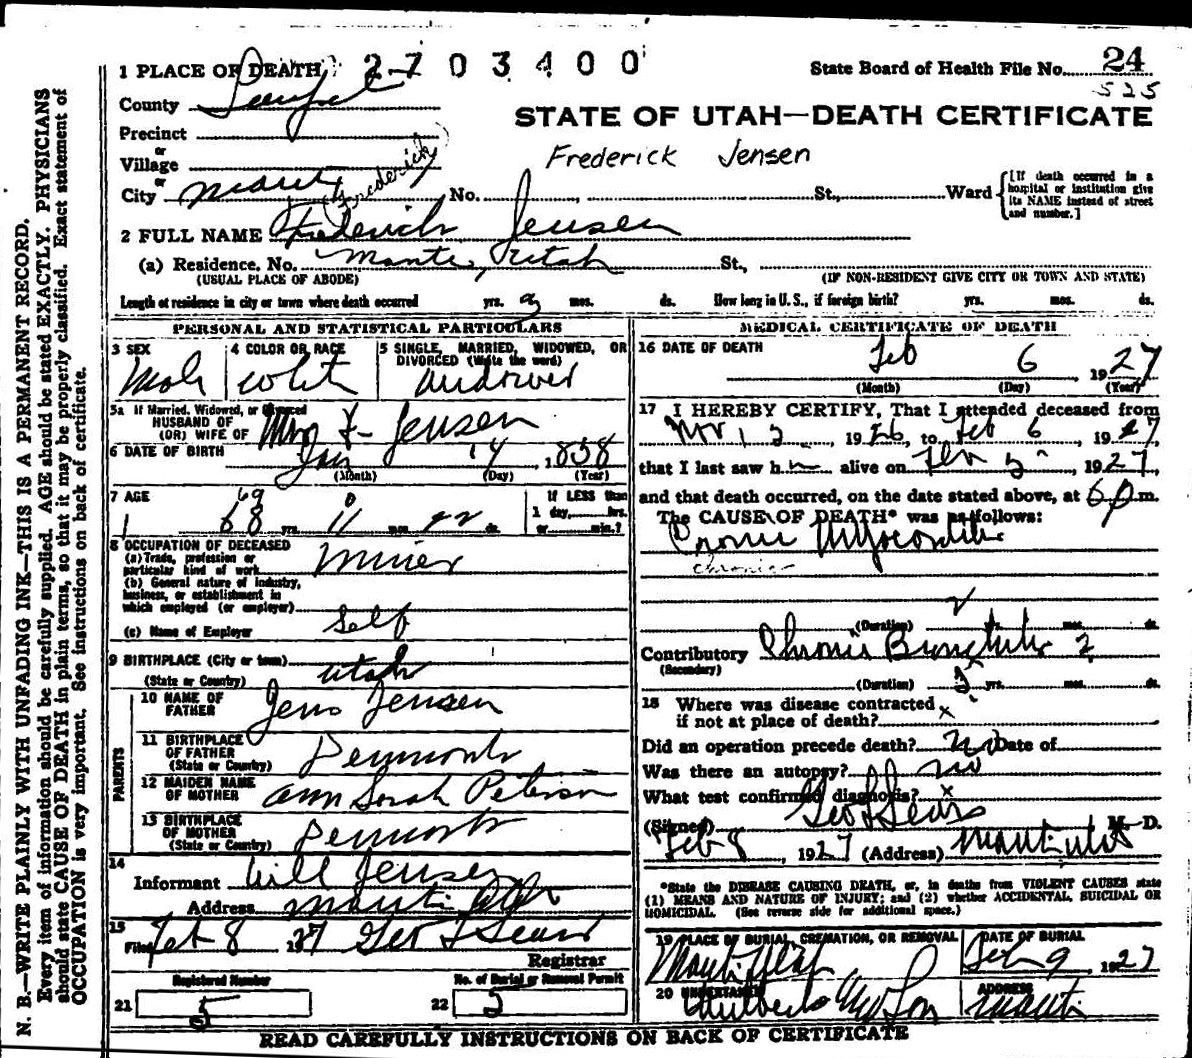 1 PLACE OF DEATH 2703400
State Board of Health File No. 24
525
County Sanpete
STATE OF UTAH—DEATH CERTIFICATE
Precinct
or
Village
Frederick Jensen
or
(Frederick)
City Manti No. St., Ward
[If death occurred in a hospital or institution give its NAME instead of street and number.]
2 FULL NAME Frederick Jensen
(a) Residence. No. Manti, Utah St.,
(USUAL PLACE OF ABODE) (IF NON-RESIDENT GIVE CITY OR TOWN AND STATE)
Length of residence in city or town where death occurred yrs. mos. ds. How long in U. S., if foreign birth? yrs. mos. ds.
PERSONAL AND STATISTICAL PARTICULARS
3 SEX 4 COLOR OR RACE 5 SINGLE, MARRIED, WIDOWED, OR DIVORCED (Write the word)
Male White Widower
5a If Married, Widowed, or Divorced
HUSBAND OF
(OR) WIFE OF Jensen
6 DATE OF BIRTH Jan 14, 1858
(Month) (Day) (Year)
7 AGE 69 0
68 yrs. 11 mos. 22 ds.
If LESS than
1 day, hrs.
or min.?
8 OCCUPATION OF DECEASED
(a) Trade, profession or
particular kind of work Miner
(b) General nature of industry,
business, or establishment in
which employed (or employer)
(c) Name of Employer Self
9 BIRTHPLACE (City or town)
(State or Country) Utah
PARENTS
10 NAME OF
FATHER Jens Jensen
11 BIRTHPLACE
OF FATHER
(State or Country) Denmark
12 MAIDEN NAME
OF MOTHER Ann Sorah Peterson
13 BIRTHPLACE
OF MOTHER
(State or Country) Denmark
14
Informant Will Jensen
Address Manti Utah
15
Filed Feb 8 1927 Geo L Sears
Registrar
Registered Number No. of Burial or Removal Permit
21 5 22 5
MEDICAL CERTIFICATE OF DEATH
16 DATE OF DEATH Feb 6, 1927
(Month) (Day) (Year)
17 I HEREBY CERTIFY, That I attended deceased from
1926, to Feb 6, 1927,
that I last saw him alive on Feb 5, 1927,
and that death occurred, on the date stated above, at 6 p m.
The CAUSE OF DEATH* was as follows:
Cronic Myocarditis
chronic
(Duration) yrs. mos. ds.
Contributory Chronic Bronchitis
(Secondary)
(Duration) yrs. mos. ds.
18 Where was disease contracted
if not at place of death? x
Did an operation precede death? no Date of
Was there an autopsy? no
What test confirmed diagnosis? x
(Signed) Geo L Sears M. D.
Feb 8, 1927 (Address) Manti Utah
*State the DISEASE CAUSING DEATH, or, in deaths from VIOLENT CAUSES state
(1) MEANS AND NATURE OF INJURY; and (2) whether ACCIDENTAL, SUICIDAL OR
HOMICIDAL. (See reverse side for additional space.)
19 PLACE OF BURIAL, CREMATION, OR REMOVAL DATE OF BURIAL
Manti Utah Feb 9 1927
20 UNDERTAKER ADDRESS
& Son Manti
READ CAREFULLY INSTRUCTIONS ON BACK OF CERTIFICATE
N. B.—WRITE PLAINLY WITH UNFADING INK—THIS IS A PERMANENT RECORD.
Every item of information should be carefully supplied. AGE should be stated EXACTLY. PHYSICIANS
should state CAUSE OF DEATH in plain terms, so that it may be properly classified. Exact statement of
OCCUPATION is very important. See instructions on back of certificate.